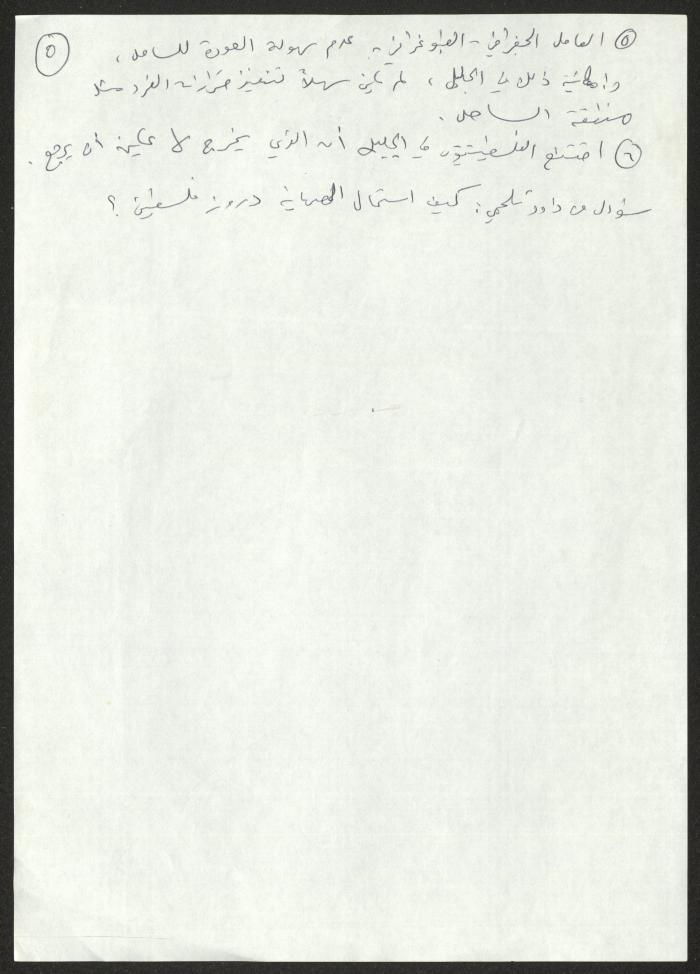 ٥
٥ العامل الجغرافي - الطبوغرافي - عدم سهولة العودة للساحل،
وإمكانية ذلك في الجليل، لم يكن سهلاً تنفيذ قرارات الطرد مثل
منطقة الساحل.
٦ اقتنع الفلسطينيون في الجليل أن الذي يخرج لا يمكن أن يرجع.
سؤال من داود تلحمي: كيف استمال الصهاينة دروز فلسطين؟